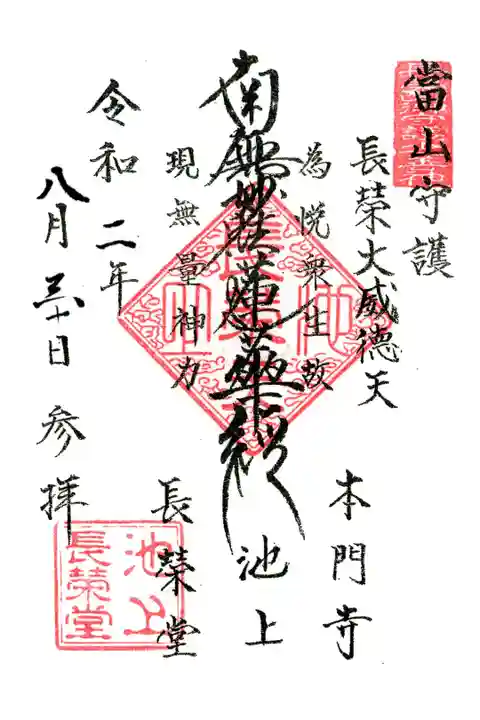 當山守護
長榮大威德天
為悦衆生故
南無妙法蓮華経
現無量神力
令和二年
八月三十日参拝
本門寺
池上
長榮堂
池上
長榮堂